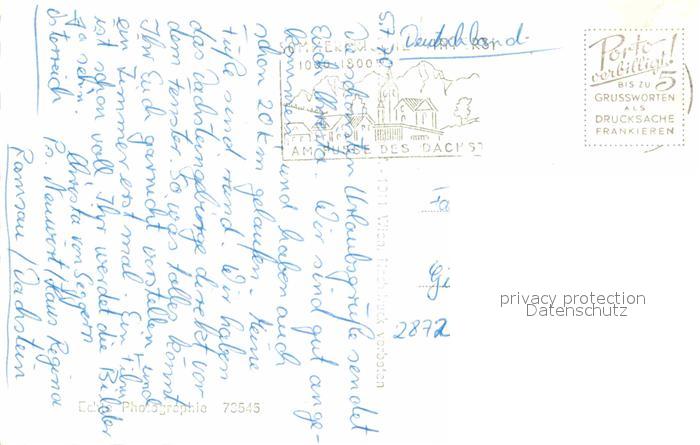 5.7.70
Die schönsten Urlaubsgrüße sendet
Euch Christa. Wir sind gut ange-
kommen und haben auch
schon 20 km gelaufen. Meine
Füße sind rund. Wir haben
das Dachsteingebirge direkt vor
dem Fenster. So was tolles könnt
Ihr Euch garnicht vorstellen und
ein Zimmer erst mal. Ein Film
ist schon voll. Ihr werdet die Bilder
ja sehn.
Christa von Seggern
Haus Regina
Ramsau / Dachstein
Österreich
Deutschland.
1000-1800
AM FUSSE DES DACHST
Porto
verbilligt!
5
BIS ZU
GRUSSWORTEN
ALS
DRUCKSACHE
FRANKIEREN
Fa
Gi
2872
privacy protection
Datenschutz
Echte Photographie 73545